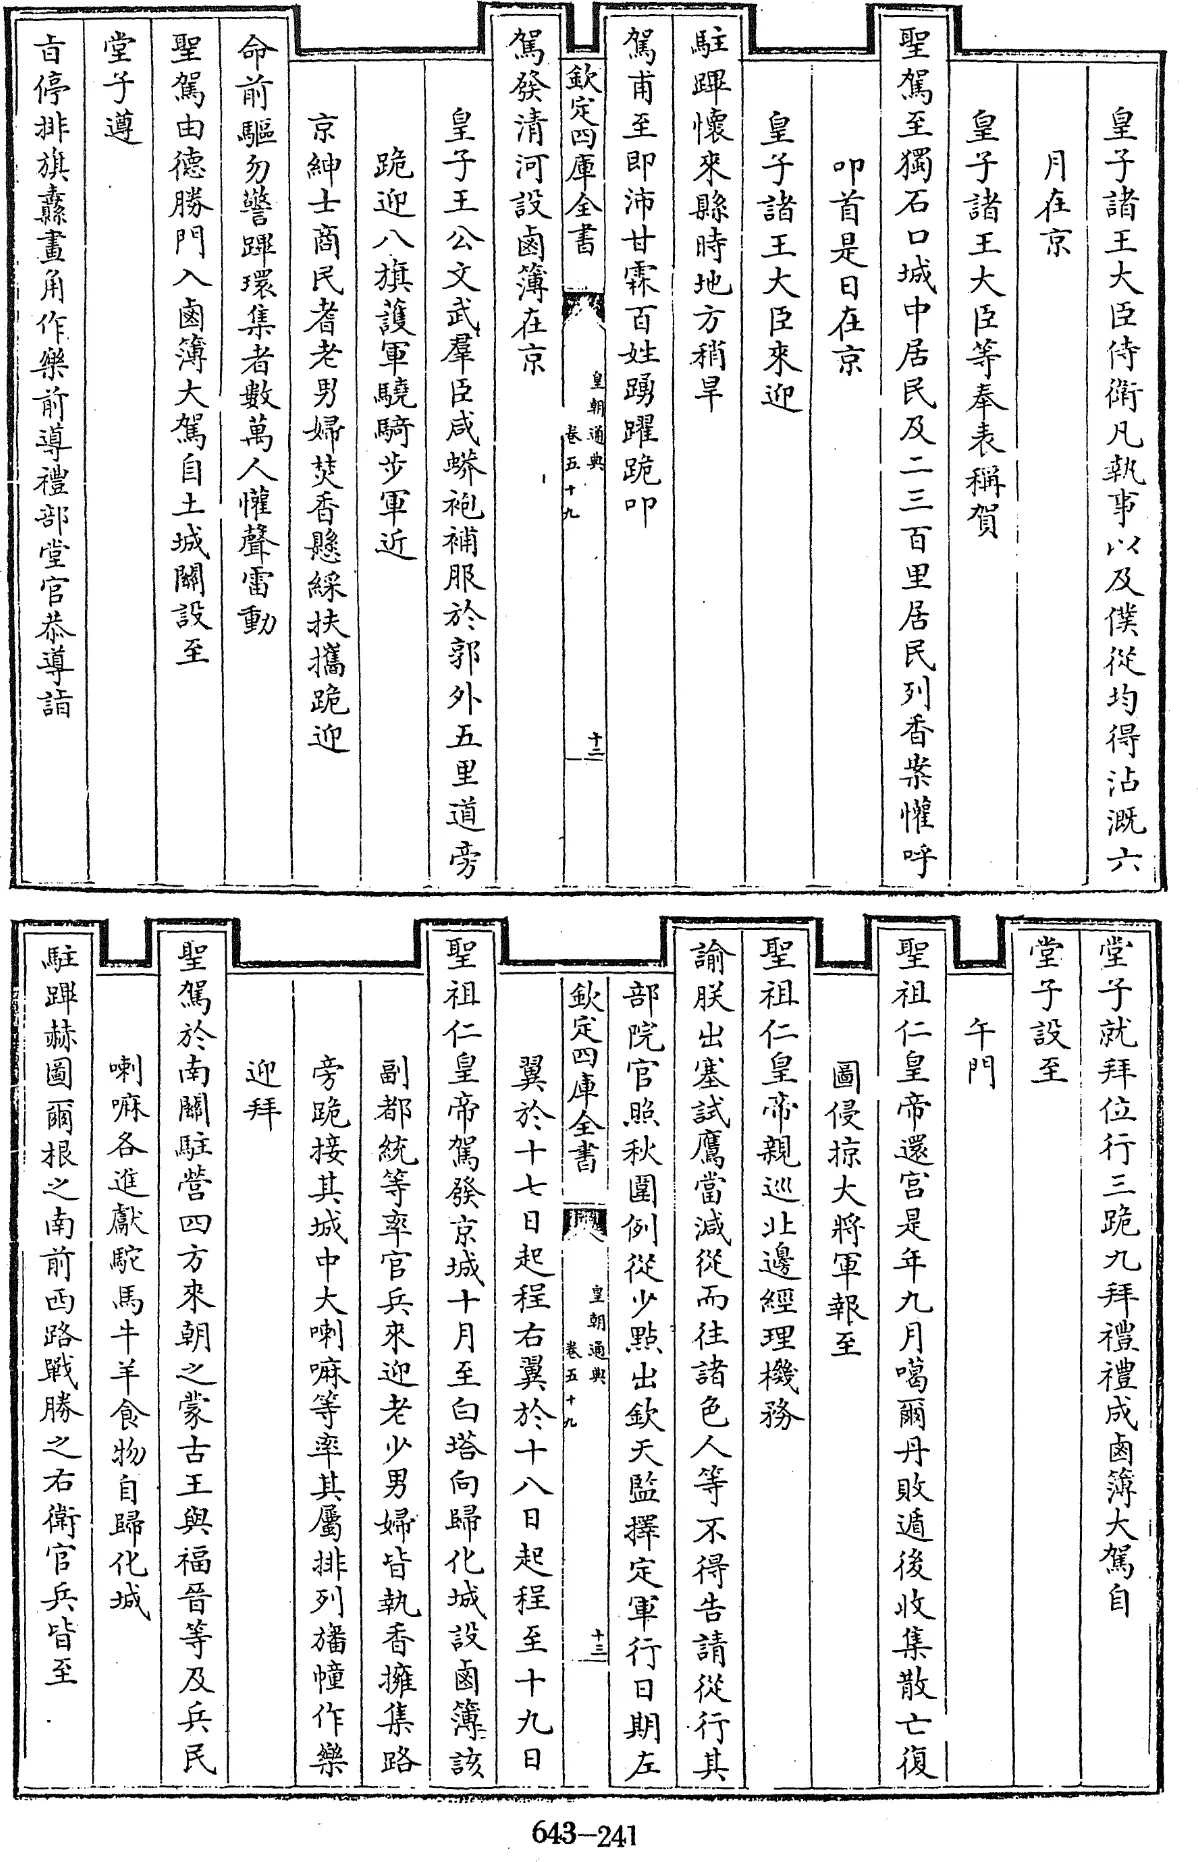 皇子諸王大臣侍衛凡執事以及僕從均得沾溉六
月在京
皇子諸王大臣等奉表稱賀
聖駕至獨石口城中居民及二三百里居民列香案懽呼
叩首是日在京
皇子諸王大臣來迎
駐蹕懷來縣時地方稍旱
駕甫至即沛甘霖百姓踴躍跪叩
欽定四庫全書
皇朝通典
卷五十九
十二
駕發清河設鹵簿在京
皇子王公文武羣臣咸蟒袍補服於郭外五里道旁
跪迎八旗護軍驍騎步軍近
京紳士商民耆老男婦焚香懸綵扶攜跪迎
命前驅勿警蹕環集者數萬人懽聲雷動
聖駕由德勝門入鹵簿大駕自土城關設至
堂子遵
㫖停排旗纛畫角作樂前導禮部堂官恭導詣
堂子就拜位行三跪九拜禮禮成鹵簿大駕自
堂子設至
午門
聖祖仁皇帝還宮是年九月噶爾丹敗遁後收集散亡復
圖侵掠大將軍報至
聖祖仁皇帝親巡北邊經理機務
諭朕出塞試鷹當減從而往諸色人等不得告請從行其
部院官照秋圍例從少點出欽天監擇定軍行日期左
欽定四庫全書
皇朝通典
卷五十九
十三
翼於十七日起程右翼於十八日起程至十九日
聖祖仁皇帝駕發京城十月至白塔向歸化城設鹵簿該
副都統等率官兵來迎老少男婦皆執香擁集路
旁跪接其城中大喇嘛等率其屬排列旛幢作樂
迎拜
聖駕於南關駐營四方來朝之蒙古王與福晉等及兵民
喇嘛各進獻駝馬牛羊食物自歸化城
駐蹕赫圖爾根之南前西路戰勝之右衛官兵皆至
643-241